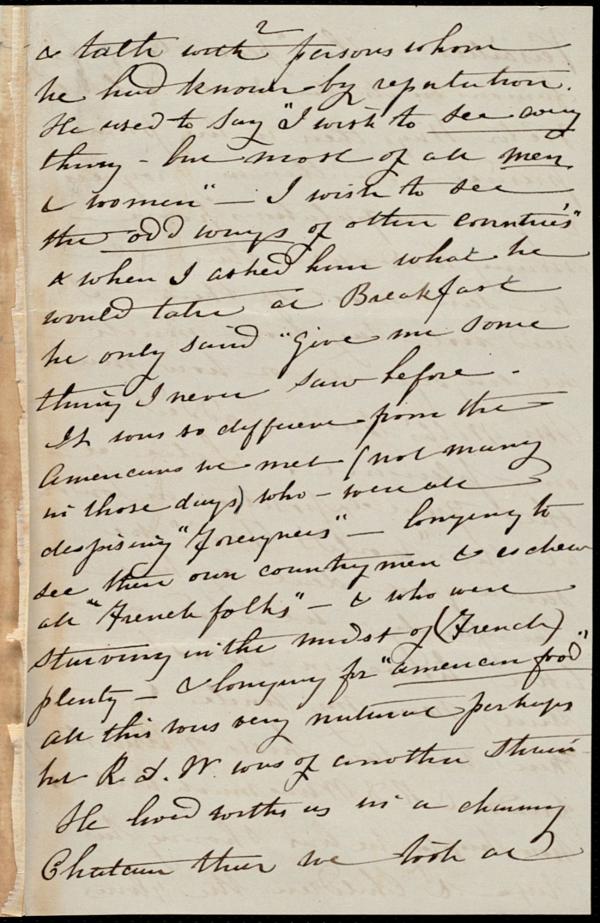 2
& talk with persons whom
he had known by reputation.
He used to say "I wish to see every
thing - but most of all men
& women" — I wish to see
the odd ways of other countries"
& when I asked him what he
would take at Breakfast
he only said "Give me some
thing I never saw before -
It was so different from the
Americans we met (not many
in those days) who - were all
despising "foreigners" — longing to
see their own countrymen & eschew
all "French folks" — & who were
starving in the midst of (French)
plenty — & longing for "american food"
all this was very natural perhaps
but R. W. was of another strain
He lived with us in a charming
Chateau that we took at